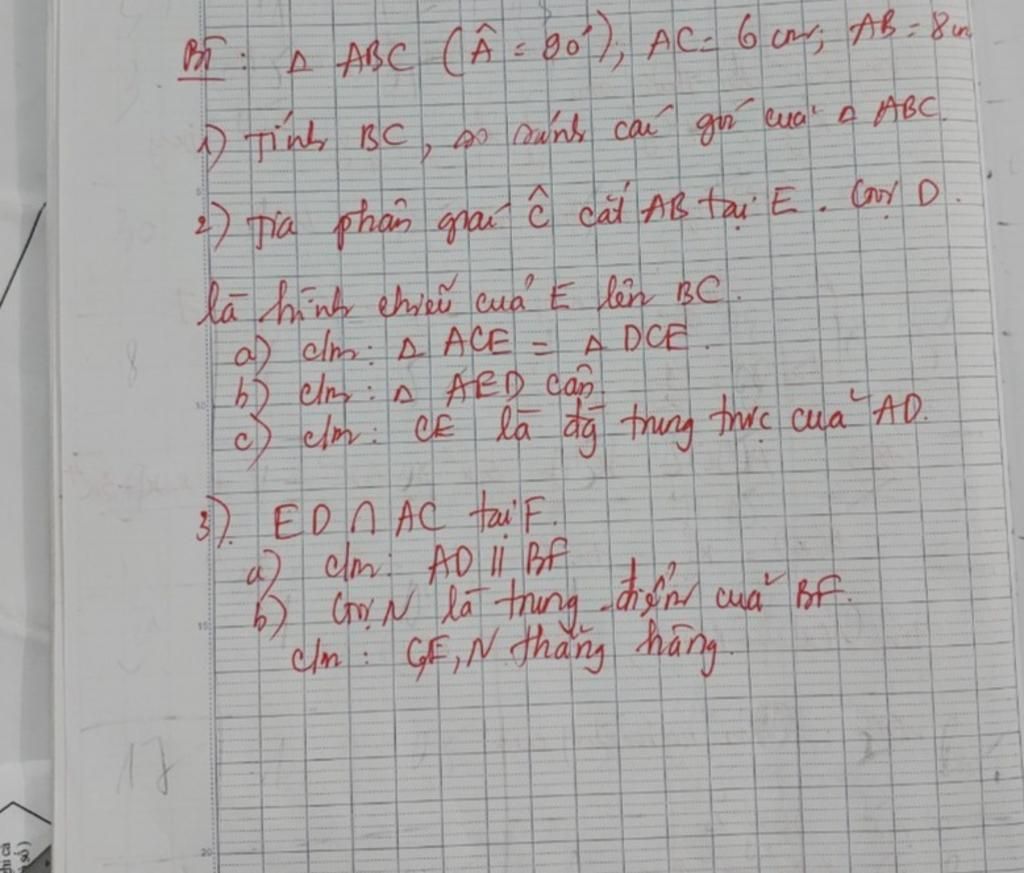 BT : Δ ABC (Â = 90°), AC = 6 cm; AB = 8 cm
1) Tính BC, so sánh các góc của Δ ABC.
2) Tia phân giác Ĉ cắt AB tại E. Gọi D
là hình chiếu của E lên BC.
a) c/m: Δ ACE = Δ DCE.
b) c/m: Δ AED cân
c) c/m: CE là đg trung trực của AD.
3). ED ∩ AC tại F.
a) c/m: AD || BF
b) Gọi N là trung điểm của BF.
c/m : C,E,N thẳng hàng.
17
20